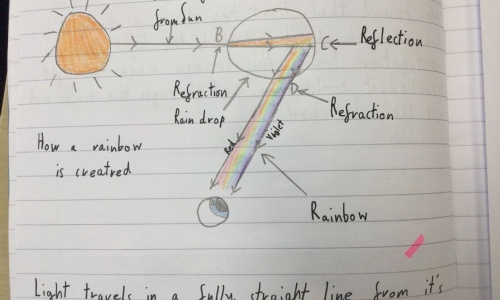 from Sun
B
C
Reflection
Refraction
D
Rain drop
Refraction
How a rainbow
is creatred
Red
Violet
Rainbow
Light travels in a fully straight line from it's